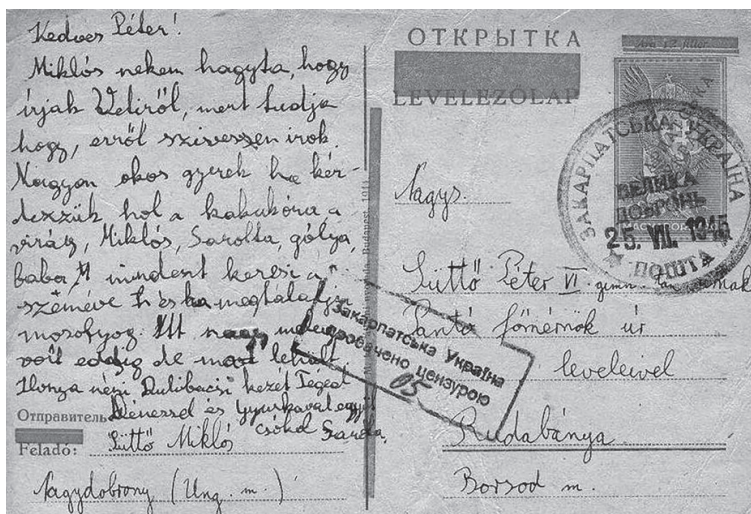 Kedves Péter!
Miklós nekem hagyta, hogy
írjak Vetiről, mert tudja
hogy, erről szivessen irok.
Nagyon okos gyerek ha kér-
dezzük hol a kakukóra, a
virág, Miklós, Sarolta, gólya,
baba mindent keresi a
szemével és ha megtalálja
mosolyog. Itt nagy meleg
volt eddig de most lehült.
Ilonya néni Dulibácsi kezét Tégedet
Dénessel és Gyurkával együtt
csókol Sarolta
Отправитель
Feladó: Süttő Miklós
Nagydobrony (Ung. m.)
Budapest, 1941
ОТКРЫТКА
LEVELEZŐLAP
Ára 12 fillér
ЗАКАРПАТСЬКА УКРАЇНА
ВЕЛИКА
ДОБРОНЬ
25. VII. 1945
ПОШТА
Nagys.
Süttő Péter VI gimn. tanulónak
Закарпатська Україна
провачено цензурою
05
Pantó főmérnök úr
leveleivel
Rudabánya
Borsod m.